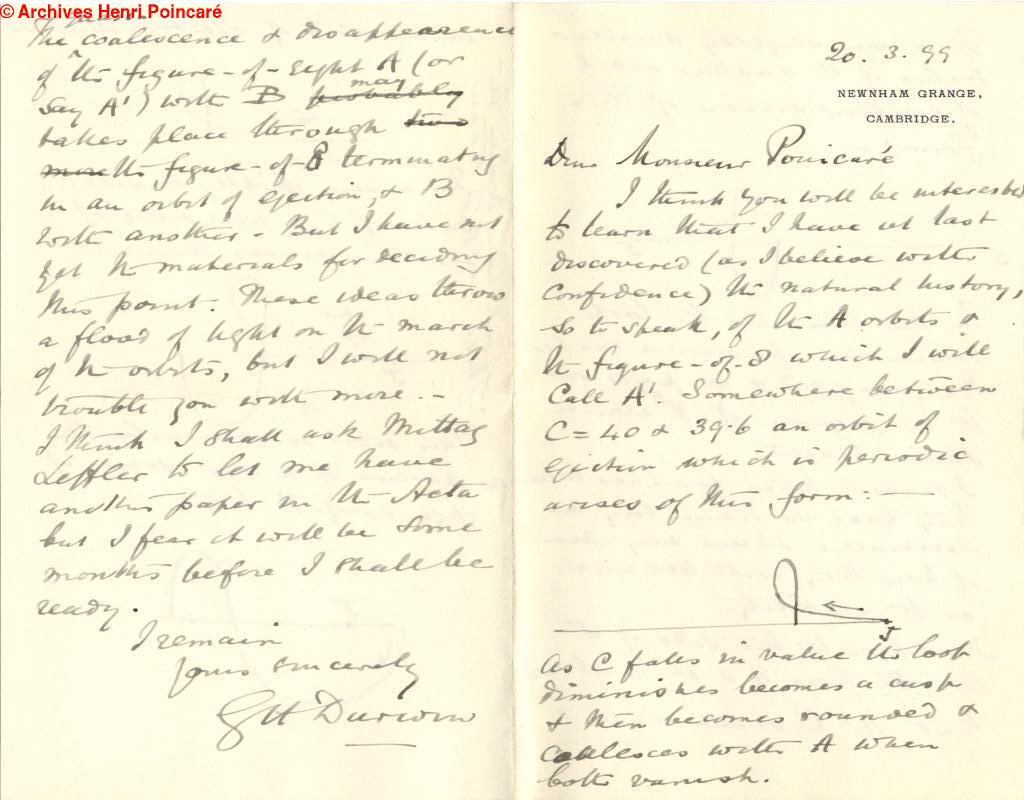 © Archives Henri Poincaré
20. 3. 99
NEWNHAM GRANGE,
CAMBRIDGE.
Dear Monsieur Poincaré
I think you will be interested
to learn that I have at last
discovered (as I believe with
confidence) the natural history,
so to speak, of the A orbits &
the figure-of-8 which I will
call A'. Somewhere between
C = 40 & 39.6 an orbit of
ejection which is periodic
arises of this form: —
J
As C falls in value the loop
diminishes becomes a cusp
& then becomes rounded &
coalesces with A when
both vanish.
The coalescence & disappearance
of the figure-of-eight A (or
say A') with B probably may
takes place through two
more the figure-of-8 terminating
in an orbit of ejection, & B
with another - But I have not
yet the materials for deciding
this point. These ideas throw
a flood of light on the march
of the orbits, but I will not
trouble you with more. -
I think I shall ask Mittag
Leffler to let me have
another paper in the Acta
but I fear it will be some
months before I shall be
ready.
I remain
Yours sincerely
G H Darwin